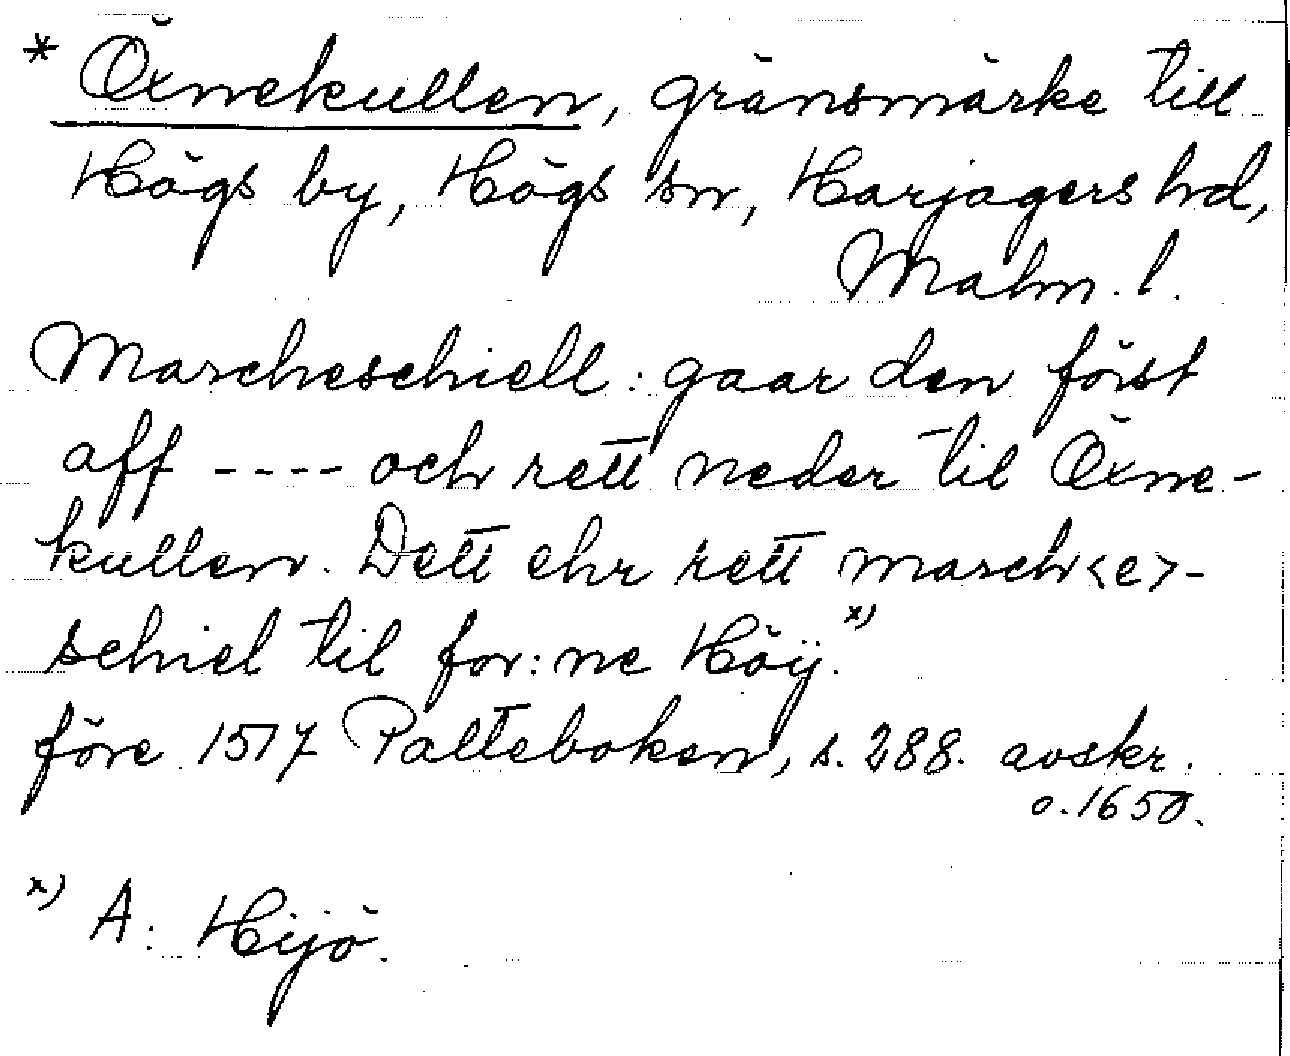 * Öxnekullen, gränsmärke till
Högs by, Högs sn, Harjagers hd,
Malm. l.
Marcheschiell: gaar den först
aff ---- och rett neder til Öxne-
kullen. Dett ehr rett march<e>-
schiel til for:ne Höÿ.x)
före 1517 Palteboken, s. 288. avskr.
o. 1650.
x) A: Hijö.